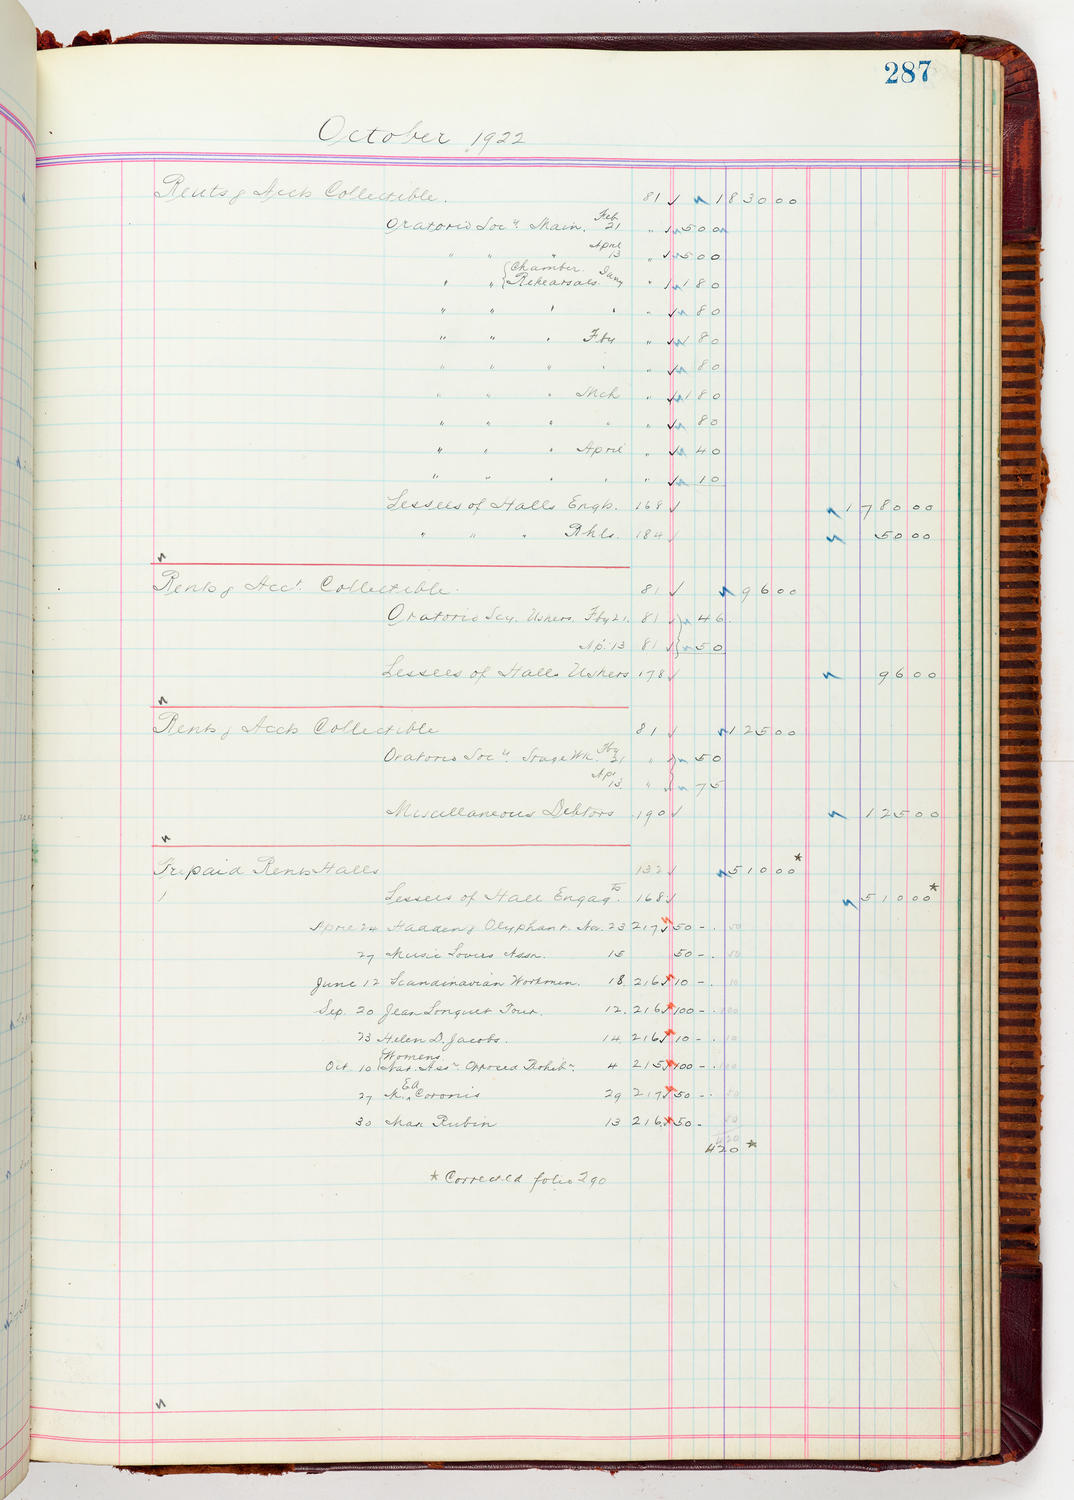 287
October 1922
Rents & Accts Collectible. 81 ✓ 1830 00
Oratorio Socy. Main. Feb 21 " ✓ 500
" " " April 13 " ✓ 500
" " { Chamber Rehearsals. Jany " 180
" " " " " ✓ 80
" " " Fby " ✓ 180
" " " " " ✓ 80
" " " Mch " ✓ 180
" " " " " ✓ 80
" " " April " ✓ 40
" " " " " ✓ 10
Lessees of Halls Engts. 168 ✓ 1780 00
" " " Rhls. 184 ✓ 50 00
Rents & Acct. Collectible. 81 ✓ 96 00
Oratorio Scy. Ushers. Fby 21. 81 ✓ 46.
Ap. 13 81 ✓ 50
Lessees of Halls Ushers 178 ✓ 96 00
Rents & Accts Collectible 81 ✓ 125 00
Oratorio Socy. Stage Wk. Fby 21 " ✓ 50
Ap. 13. " ✓ 75
Miscellaneous Debtors 190 ✓ 125 00
Prepaid Rents Halls 132 ✓ 510 00 *
1 Lessees of Hall Engagts 168 ✓ 510 00 *
April 24 Hadden & Olyphant. Nov. 23 217 ✓ 50 - . 50
27 Music Lovers Assn. 15 50 - . 50
June 12 Scandinavian Workmen. 18. 216 ✓ 10 - . 10
Sep. 20 Jean Longuet Tour. 12. 216 ✓ 100 - . 100
23 Helen D. Jacobs. 14 216 ✓ 10 - . 10
Oct. 10 { Womens Nat. Assn. Opposed Prohibn. 4 215 ✓ 100 - . 100
27 M. EA Coronis 29 217 ✓ 50 - . 50
30 Max Rubin 13 216 ✓ 50 - 50
420
420 *
* Corrected folio 290